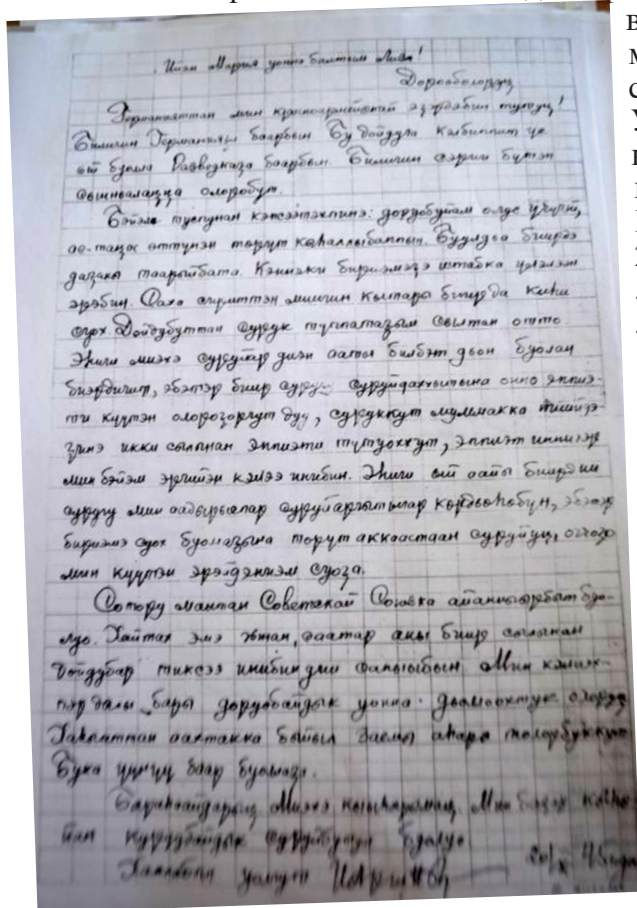 Ийэм Мария уонна балтым Лиза!
Дорооболоруҥ
Германияттан мин красноармейскай эҕэрдэбин тутуҥ!
Билигин Германияҕа баарбын Бу дойдуга кэлбиппит үс
ый буолла Разведкаҕа баарбын. Билигин сэрии бүтэн
сынньалаҥҥа олоробут.
Бэйэм туспунан кэпсээтэхпинэ: доруобуйам олус үчүгэй,
ас-таҥас өттүнэн төрүт кыһаллыбаппын. Буулдьа биирдэ
даҕаны таарыйбата. Кэнники бириэмэҕэ штабка үлэлээн
эрэбин. Саха сириттэн миигин кытары биир да киһи
суох. Дойдубуттан сурук туппатаҕым сылтан орто
Эһиги миэхэ суруйар диэн ааты билбэт дьон буолан
биэрдигит, эбэтэр биир сурук суруйдаххытына онно эппиэ-
ти күүтэн олороҕоргут дуу, суруккут муммакка тиийдэ-
ҕинэ икки сылынан эппиэти тутуоххут, эппиэт иннигэр
мин бэйэм эргийэн кэлээ инибин. Эһиги ый аайы биирдии
суругу мин аадырыспар суруйаргытыгар көрдөһөбүн, эбэтэр
бириэмэ суох буолаҕына төрүт аккаастаан суруйуҥ, оччоҕо
мин күүтэн эрэйдэниэм суоҕа.
Сотору мантан Советскай Союзка айанныырбыт буо-
луо. Хайтах эмэ гынан, саатар аны биир сылынан
дойдубар тиксээ инибин дии саныыбын. Мин кэлиэх-
пэр дылы бары доруобайдык уонна дьоллоохтук олоруҥ
Хаһааттан аахтахха быйыл
Бука үчүгэй баар буолаҕа.
Миэхэ Мин
суруйуҥ
45